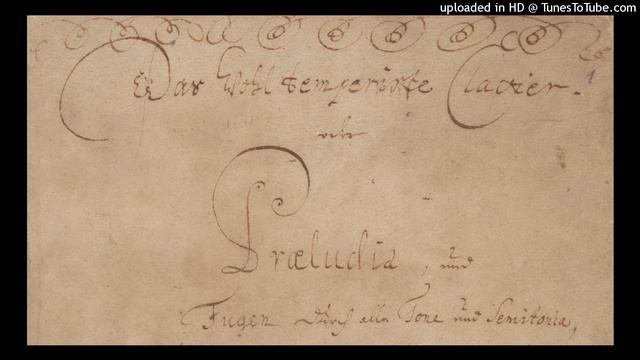 uploaded in HD @ TunesToTube.com
1
Das Wohltemperirte Clavier.
oder
Præludia, und
Fugen durch alle Tone und Semitonia,